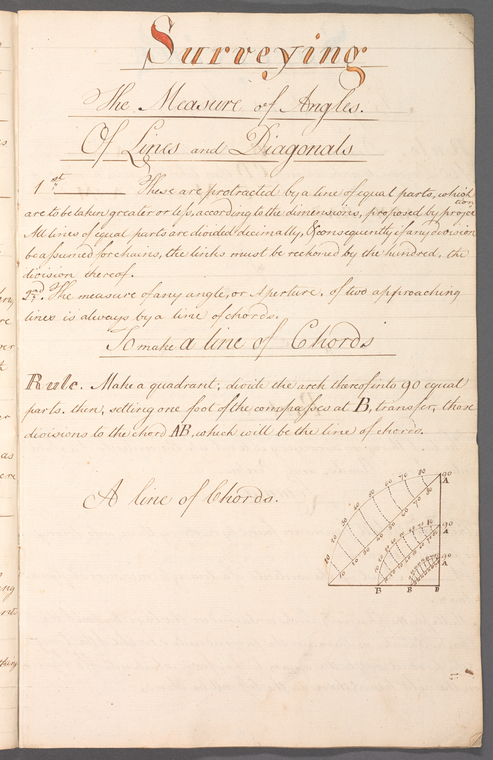 Surveying
The Measure of Angles.
Of Lines and Diagonals
1st These are protracted by a line of equal parts, which
are to be taken greater or less, according to the dimensions, proposed by projec
tion,
All lines of equal parts are divided decimally, & consequently if any decision
be assumed for chains, the links must be reckoned by the hundred, the
decision thereof.
2d. The measure of any angle, or Aperture, of two approaching
lines is always by a line of chords.
To make a line of Chords
Rule. Make a quadrant; divide the arch thereof into 90 equal
parts. then, setting one foot of the compasses at B, transfer, those
divisions to the chord AB, which will be the line of chords.
A line of Chords.
10 20 30 40 50 60 70 80 90
A
10 20 30 40 50 60 70 80
90
A
90
A
B B B